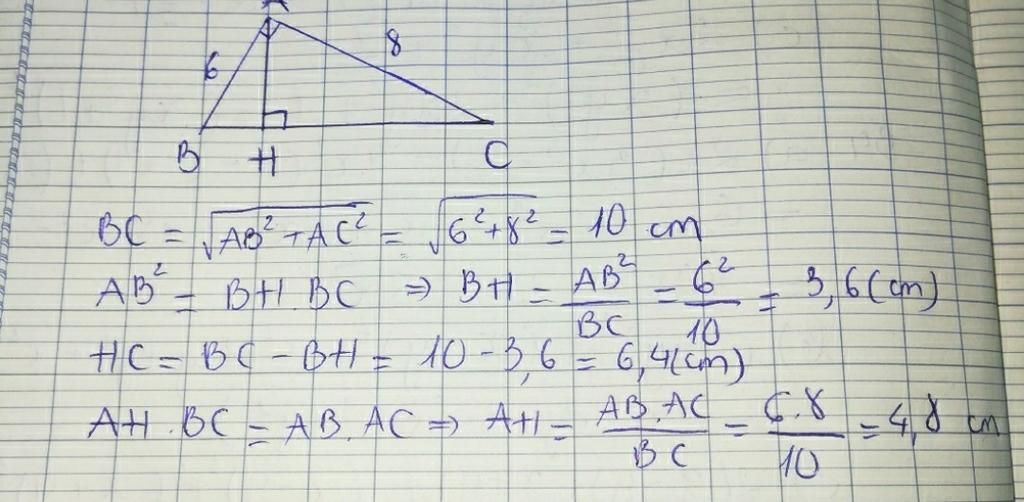 A
6 8
B H C
BC = √(AB² + AC²) = √(6² + 8²) = 10 cm
AB² = BH . BC ⇒ BH = AB²/BC = 6²/10 = 3,6 (cm)
HC = BC - BH = 10 - 3,6 = 6,4 (cm)
AH . BC = AB . AC ⇒ AH = AB . AC/BC = 6 . 8/10 = 4,8 cm